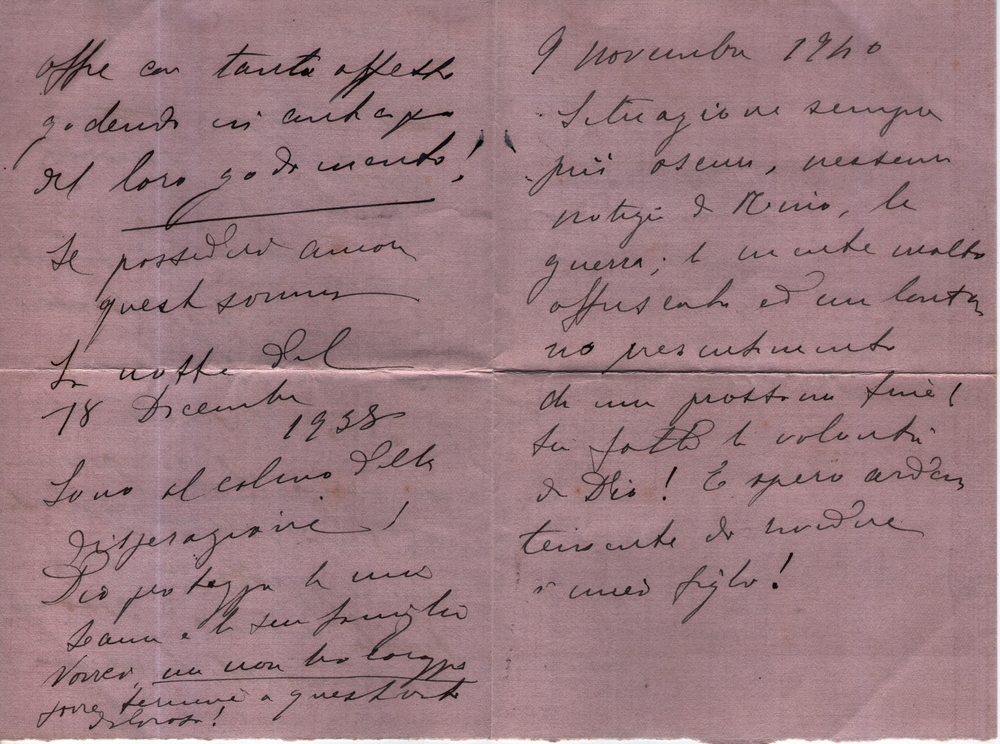 offre con tanto affetto
godendo in anticipo
del loro godimento!
Se possederò ancora
questa somma
La notte del
18 Dicembre
1938
Sono al colmo della
disperazione!
Dio protegga la mia
e la sua famiglia
Vorrei, ma non ho coraggio
porre termine a questa vita
dolorosa!
9 novembre 1940
Situazione sempre
più oscura, nessuna
notizia di Nino, la
guerra; la mente molto
offuscata ed un lonta
no presentimento
di una prossima fine!
Sia fatta la volontà
di Dio! E spero arden
temente di rivedere
i miei figli!